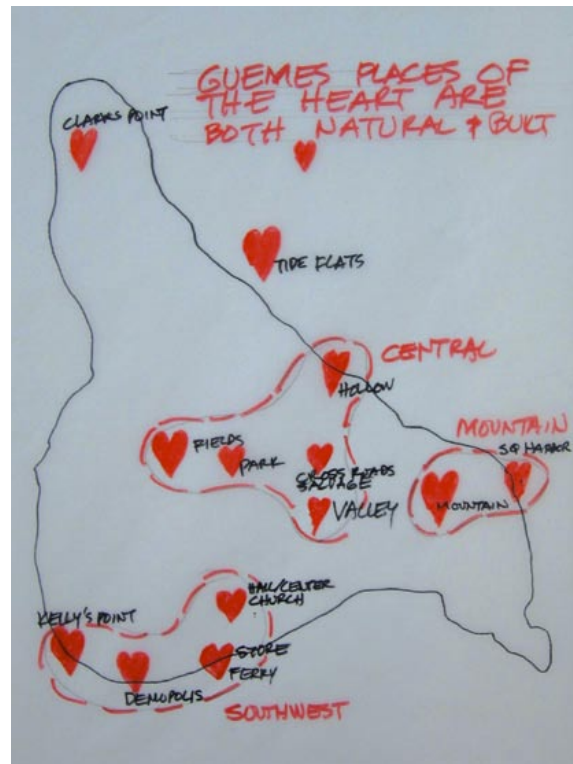 GUEMES PLACES OF
THE HEART ARE
BOTH NATURAL & BUILT
CLARKS POINT
TIDE FLATS
CENTRAL
HOLLOW
MOUNTAIN
SQ HARBOR
FIELDS
PARK
CROSS ROADS
SALVAGE
VALLEY
MOUNTAIN
HALL/CENTER
CHURCH
KELLY'S POINT
STORE
FERRY
DEMOPOLIS
SOUTHWEST